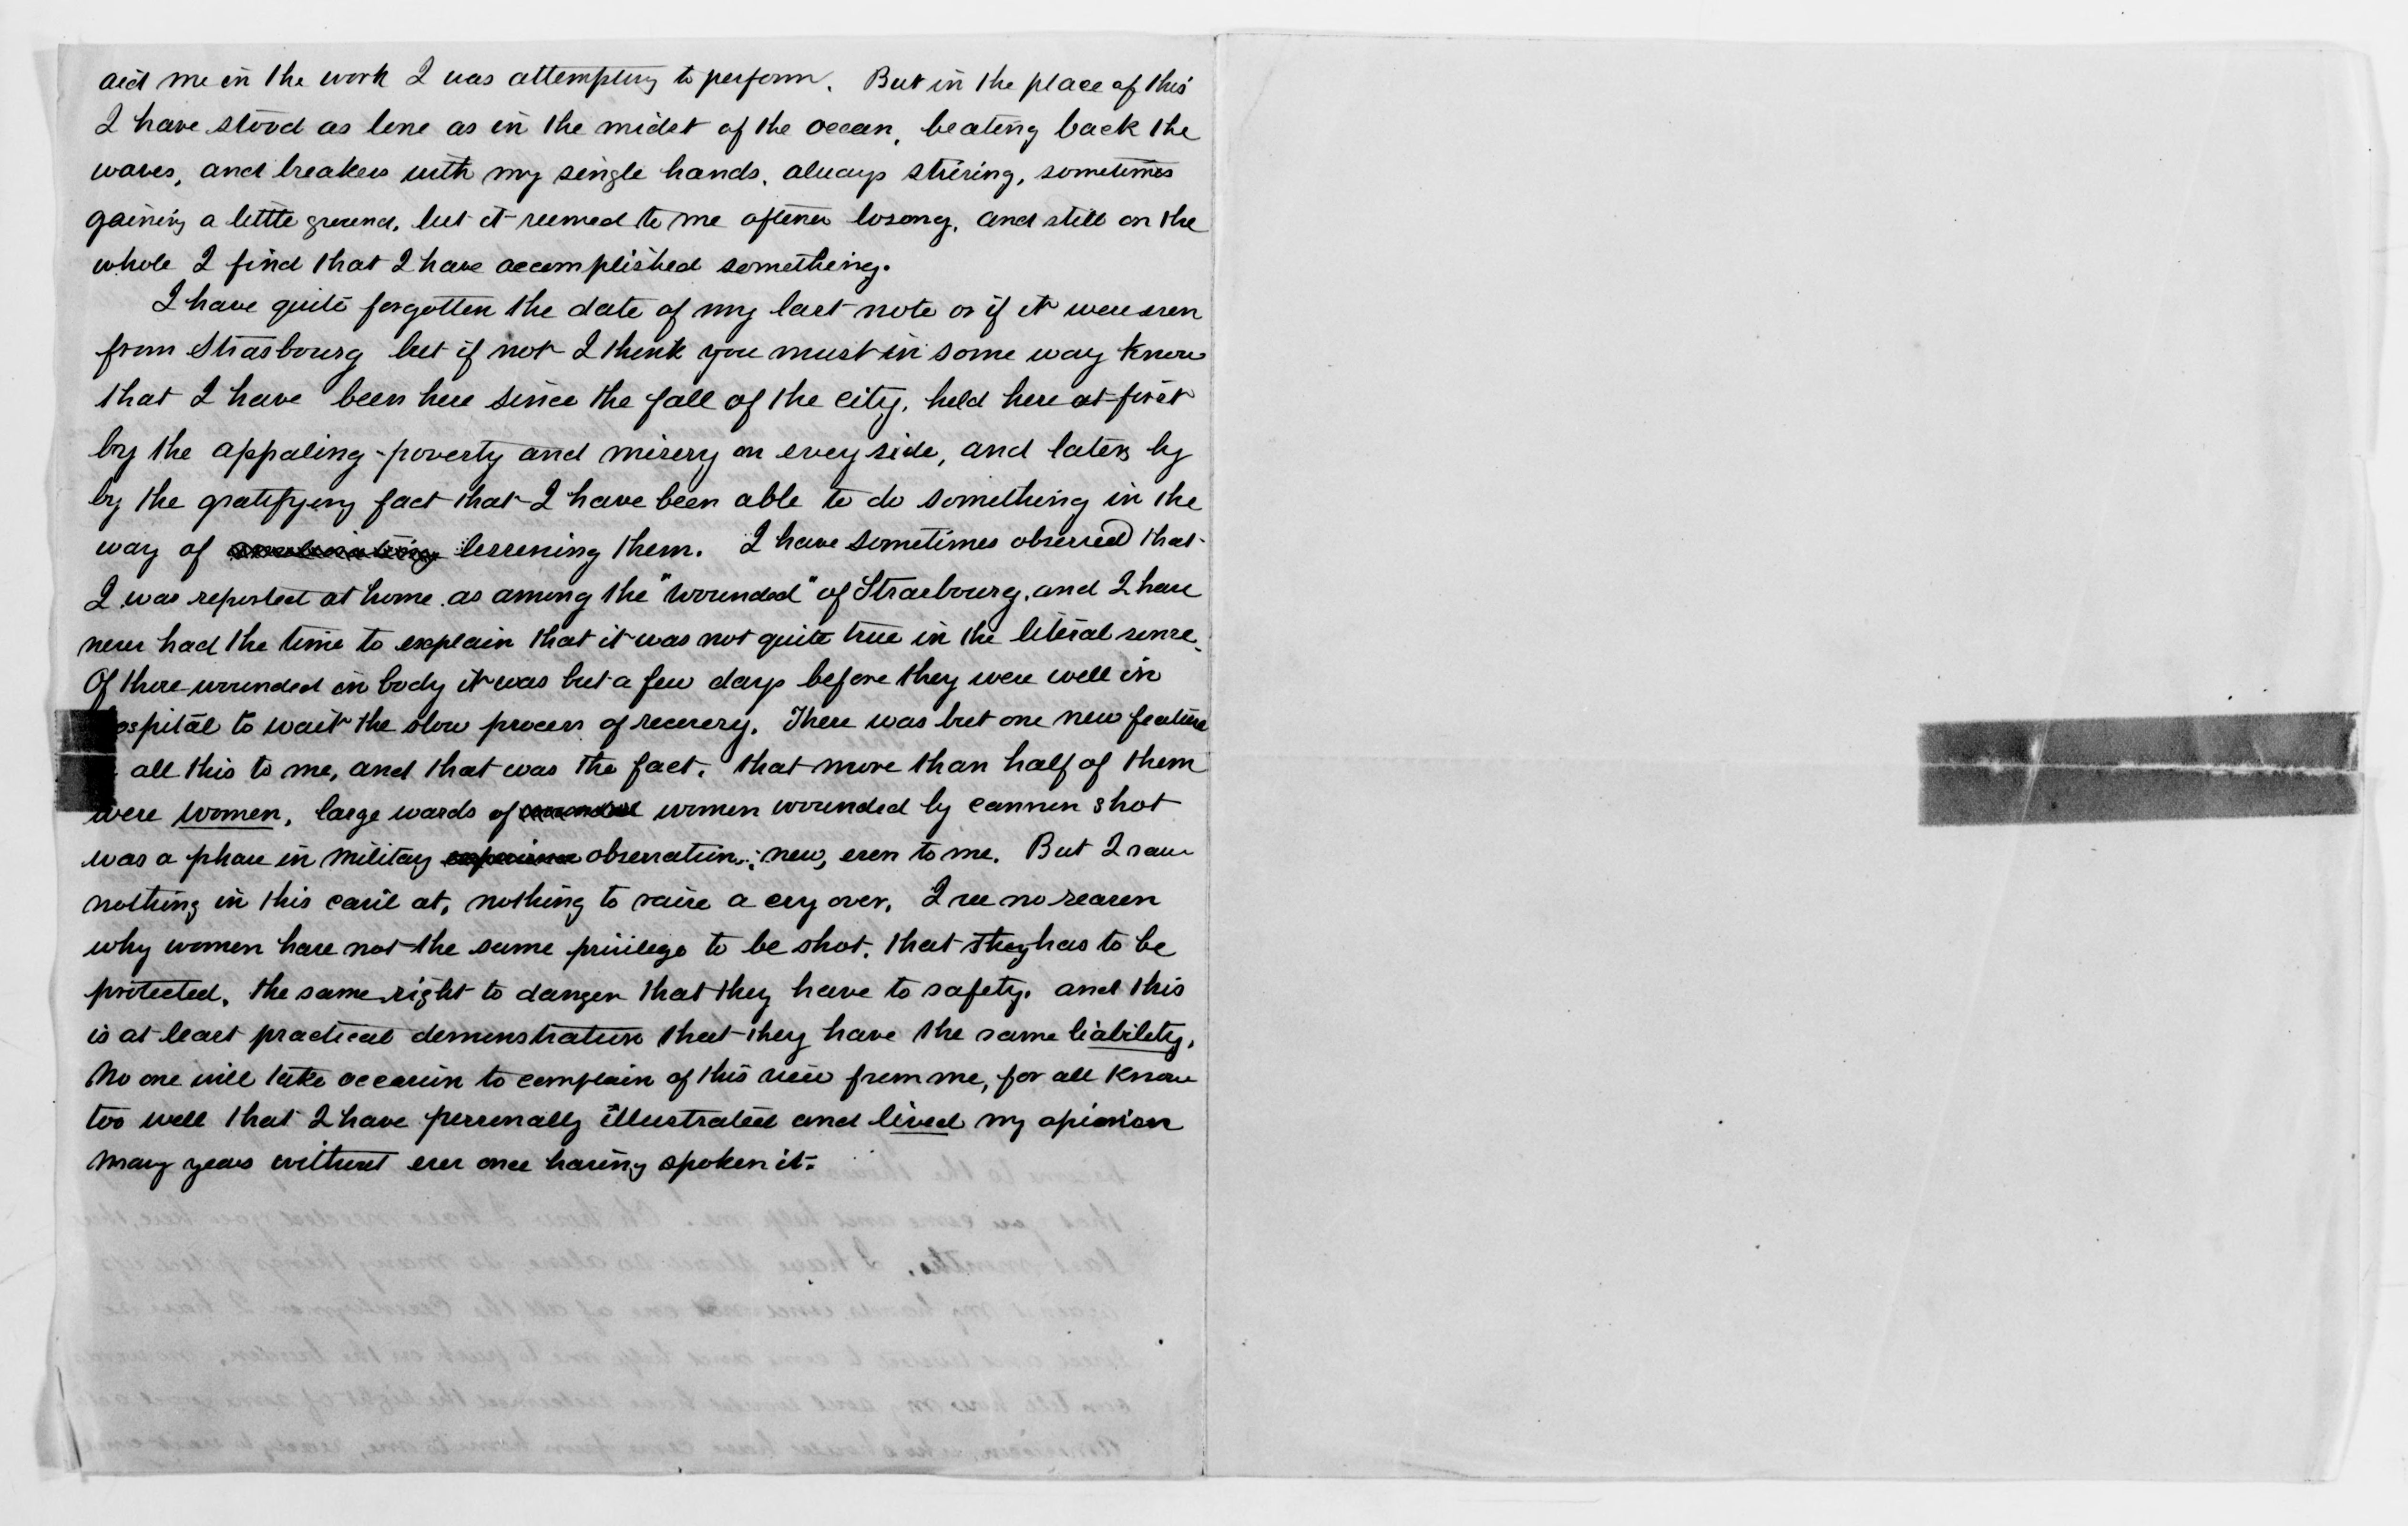 aid me in the work I was attempting to perform. But in the place of this
I have stood as lone as in the midst of the ocean, beating back the
waves, and breakers with my single hands, always striving, sometimes
gaining a little ground, but it seemed to me oftener losong, and still on the
whole I find that I have accomplished something.
I have quite forgotten the date of my last note or if it were even
from Strasbourg but if not I think you must in some way know
that I have been here since the fall of the city, held here at first
by the appaling poverty and misery on every side, and later by
by the gratifying fact that I have been able to do something in the
way of ameliorating lessening them. I have sometimes observed that
I was reported at home as among the "wounded" of Strasbourg, and I have
never had the time to explain that it was not quite true in the literal sense.
Of those wounded in body it was but a few days before they were well in
ospital to wait the slow process of recovery. There was but one new feature
all this to me, and that was the fact, that more than half of them
were women, large wards of wounded women wounded by cannon shot
was a phase in military experience observation; new, even to me. But I saw
nothing in this cavil at, nothing to raise a cry over, I see no reason
why women have not the same privilege to be shot, that they has to be
protected, the same right to danger that they have to safety, and this
is at least practical demonstration that they have the same liability.
No one will take occasion to complain of this view from me, for all know
too well that I have personally illustrated and lived my opinion
many years without ever once having spoken it.